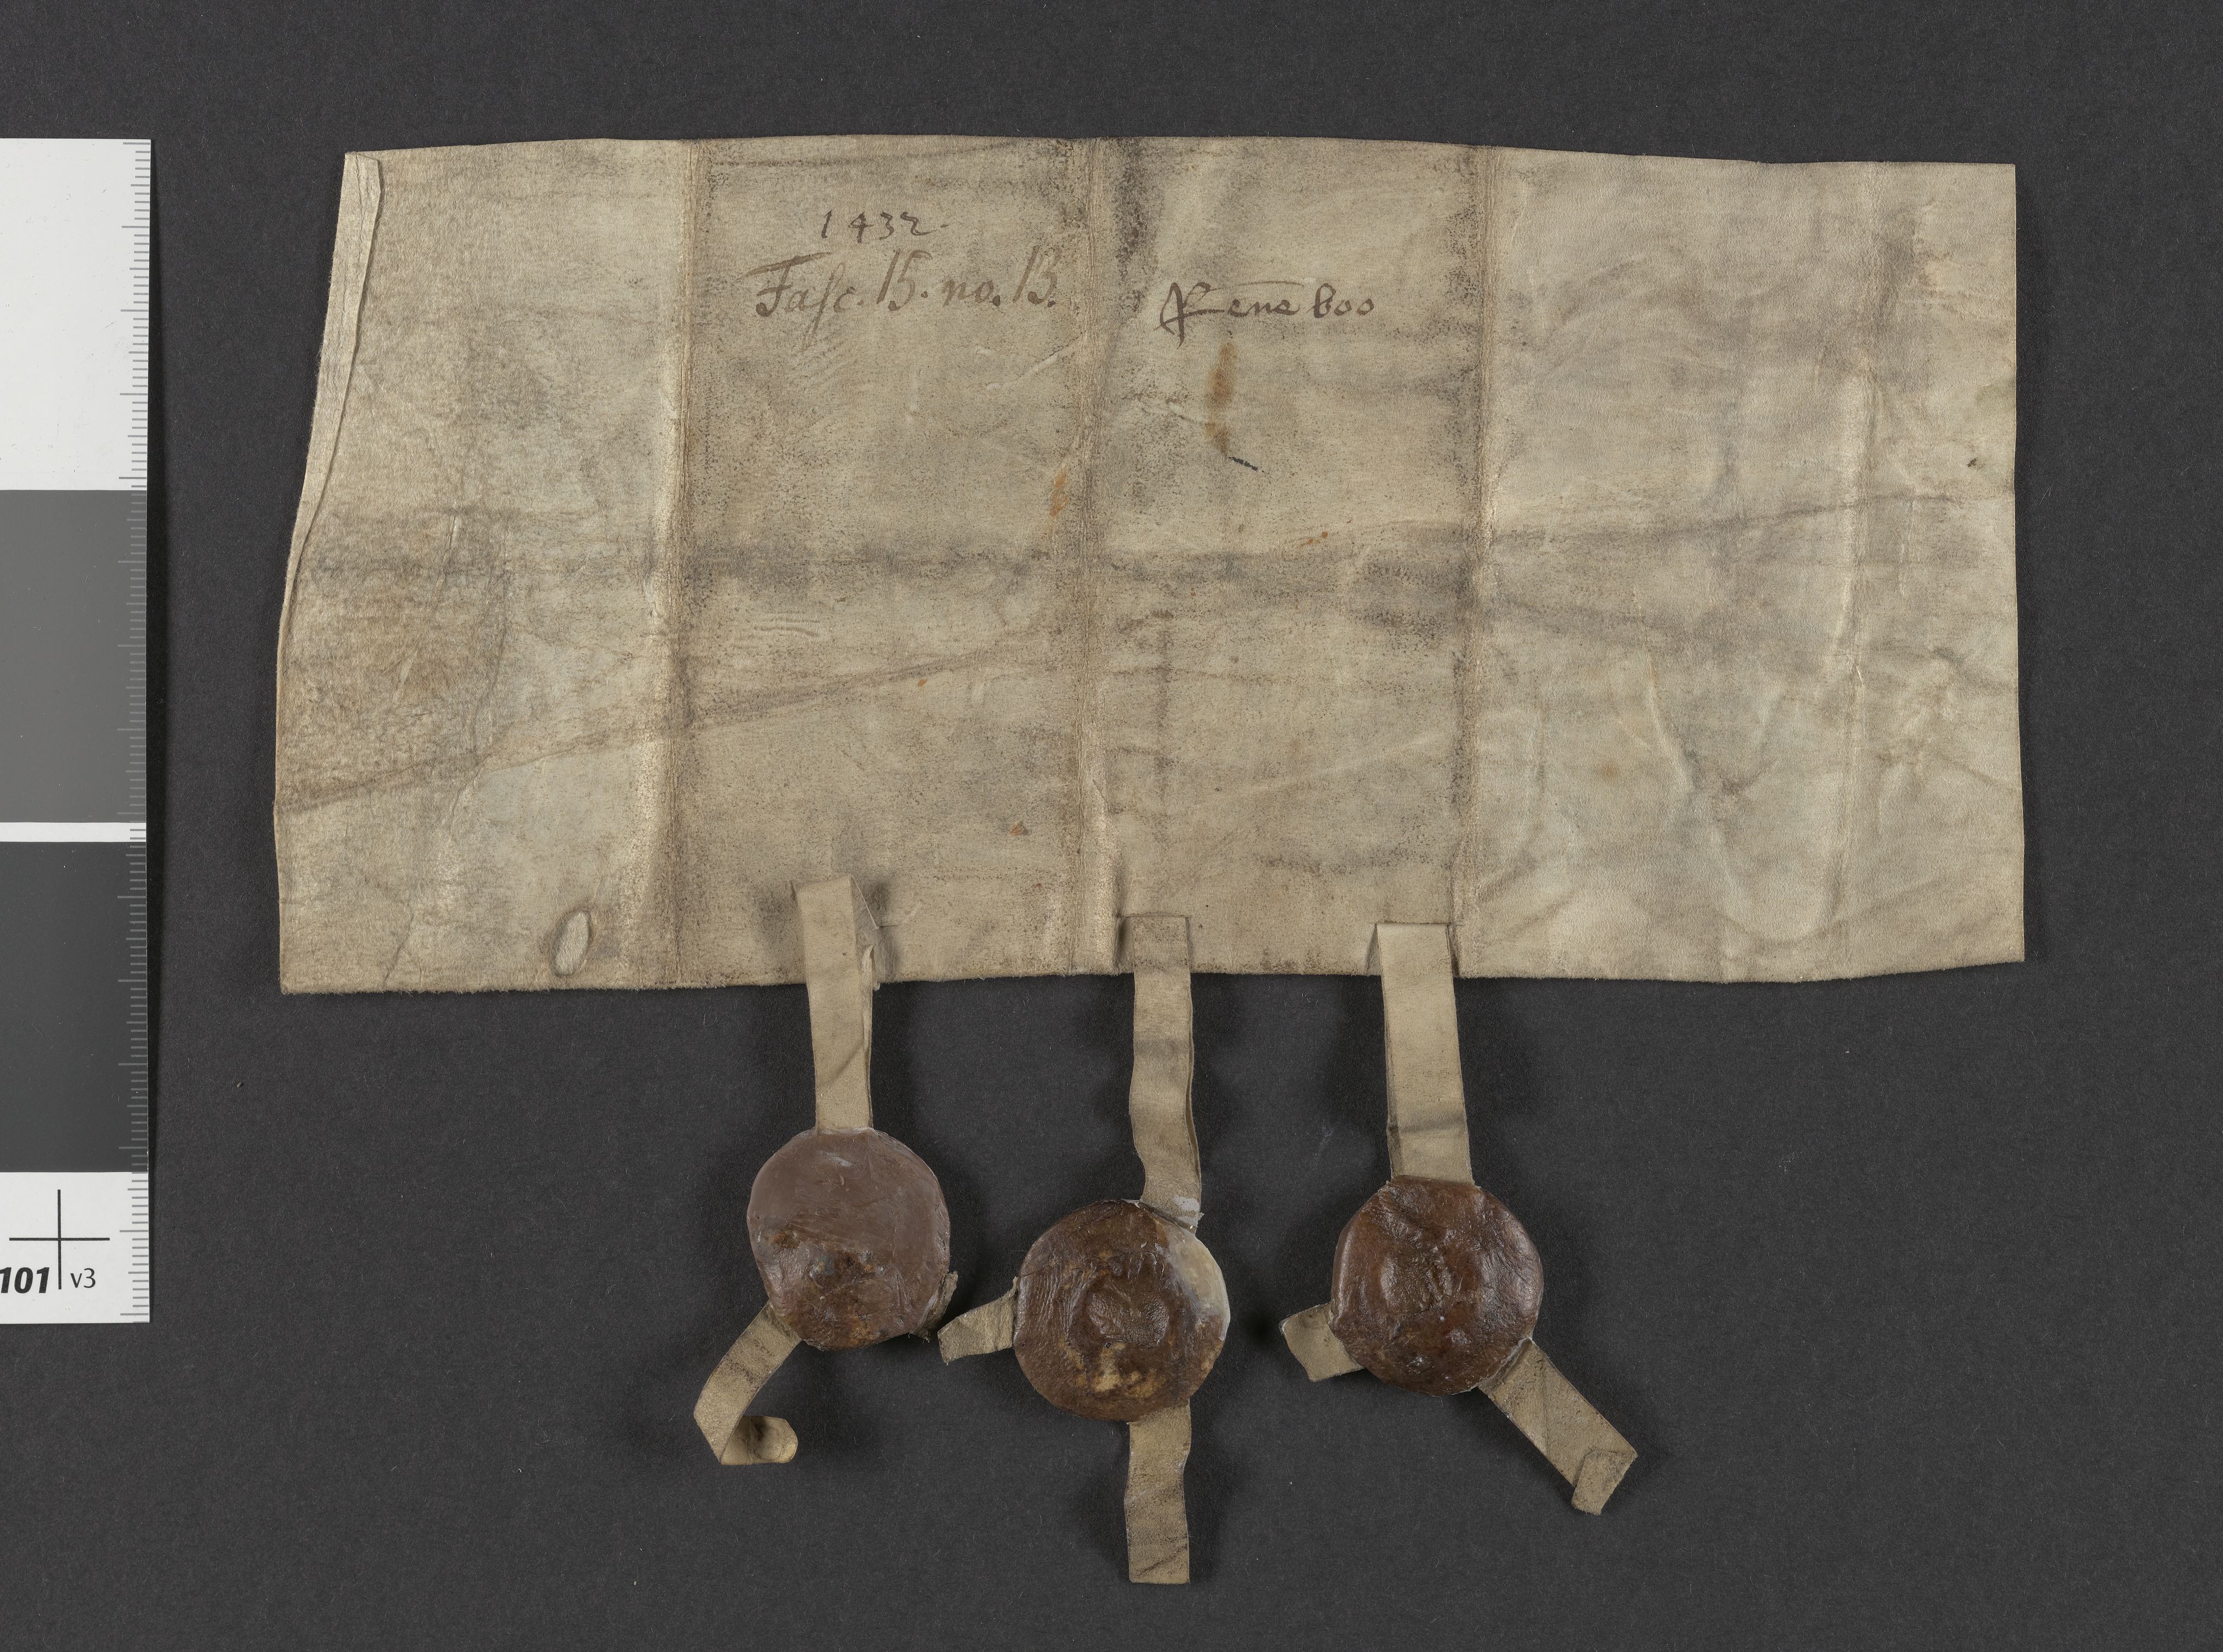 1432.
Fasc. 15. no. 13.
Rene boo
101 v3